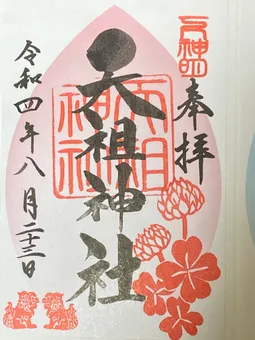 奉拝
天祖神社
天祖
神社
令和四年八月二十三日